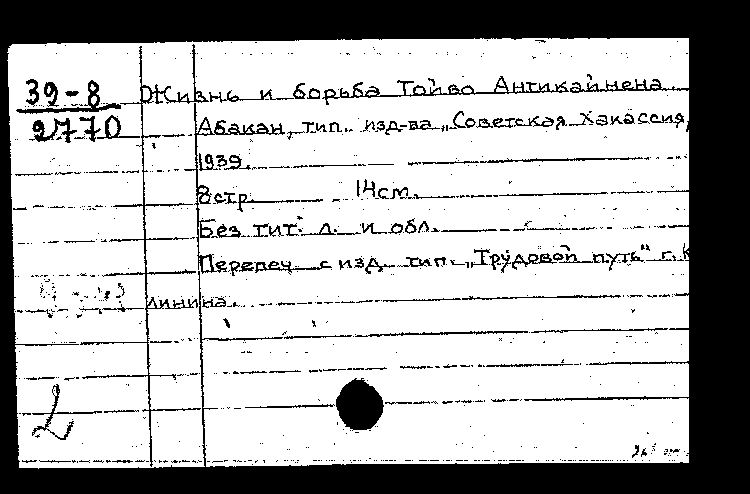 39-8
2770
Жизнь и борьба Тойво Антикайнена.
Абакан, тип. изд-ва „Советская Хакассия,
1939.
8стр. 14см.
Без тит. л. и обл.
Перепеч. с изд. тип. „Трудовой путь" г. К
линина.
2